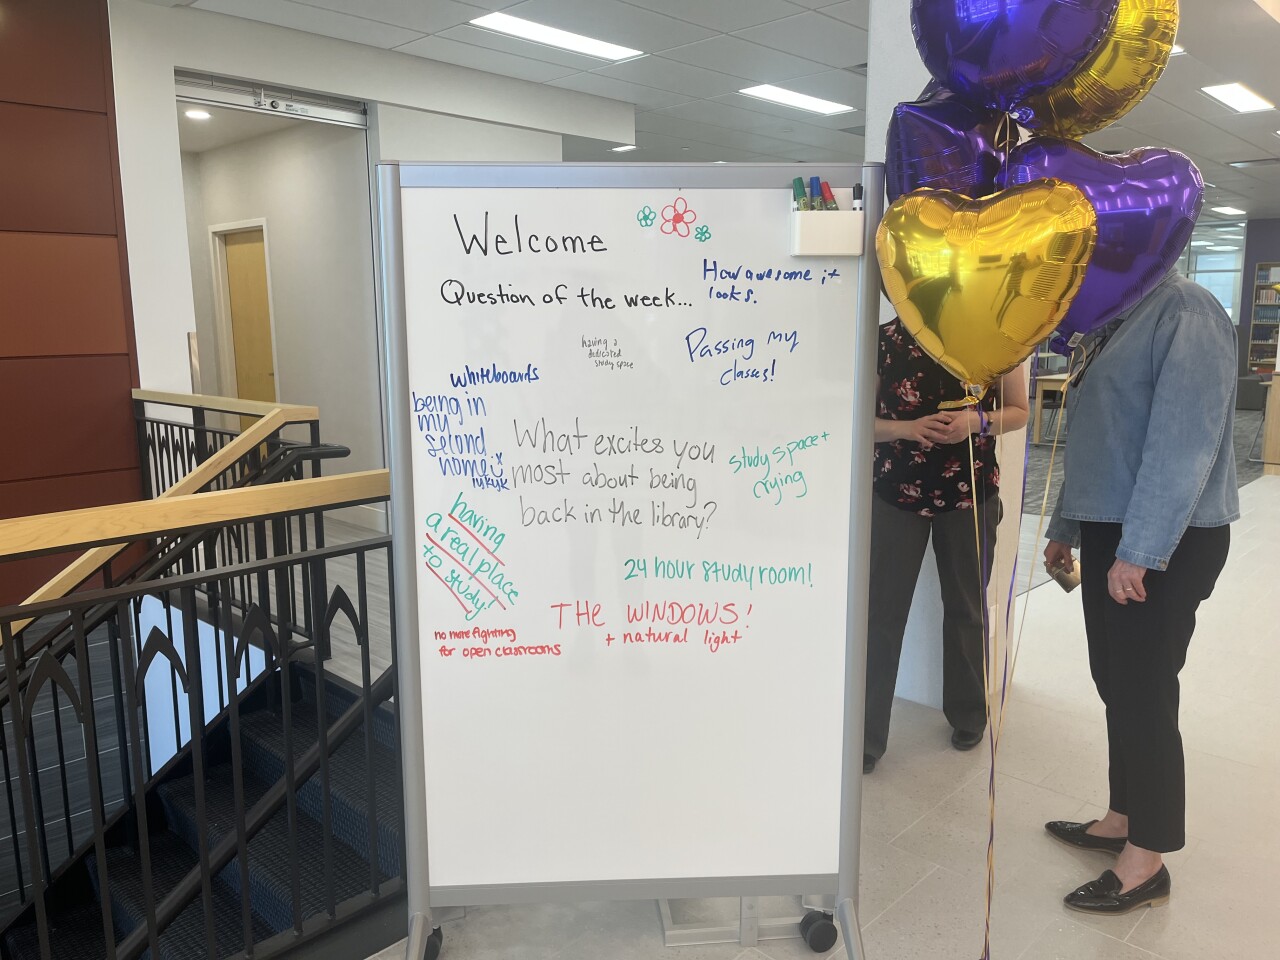 Welcome
Question of the week...
How awesome it
looks.
having a
dedicated
study space
Passing my
classes!
whiteboards
being in
my
second
home
What excites you
most about being
back in the library?
study space +
crying
having
a real place
to study!
24 hour study room!
THE WINDOWS!
+ natural light
no more fighting
for open classrooms